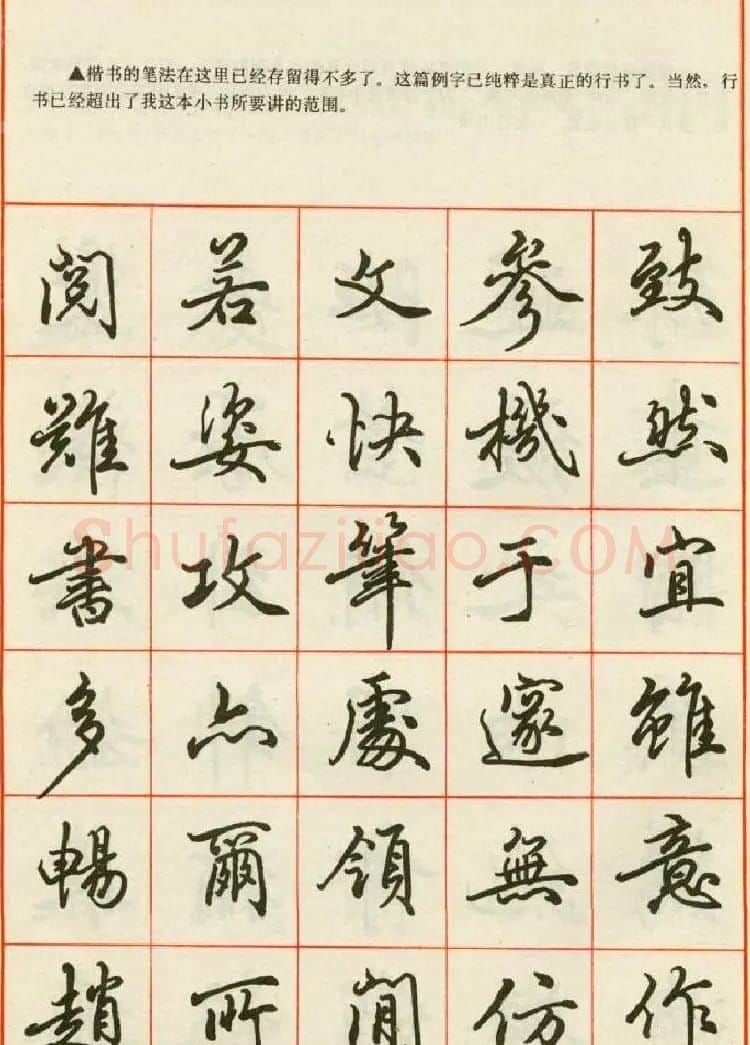 ▲楷书的笔法在这里已经存留得不多了。这篇例字已纯粹是真正的行书了。当然，行
书已经超出了我这本小书所要讲的范围。
致然宜雖意作
參機于邃無仿
文快筆處領間
若姿攻亦爾所
閱難書多暢趙
Shufaziliao.COM